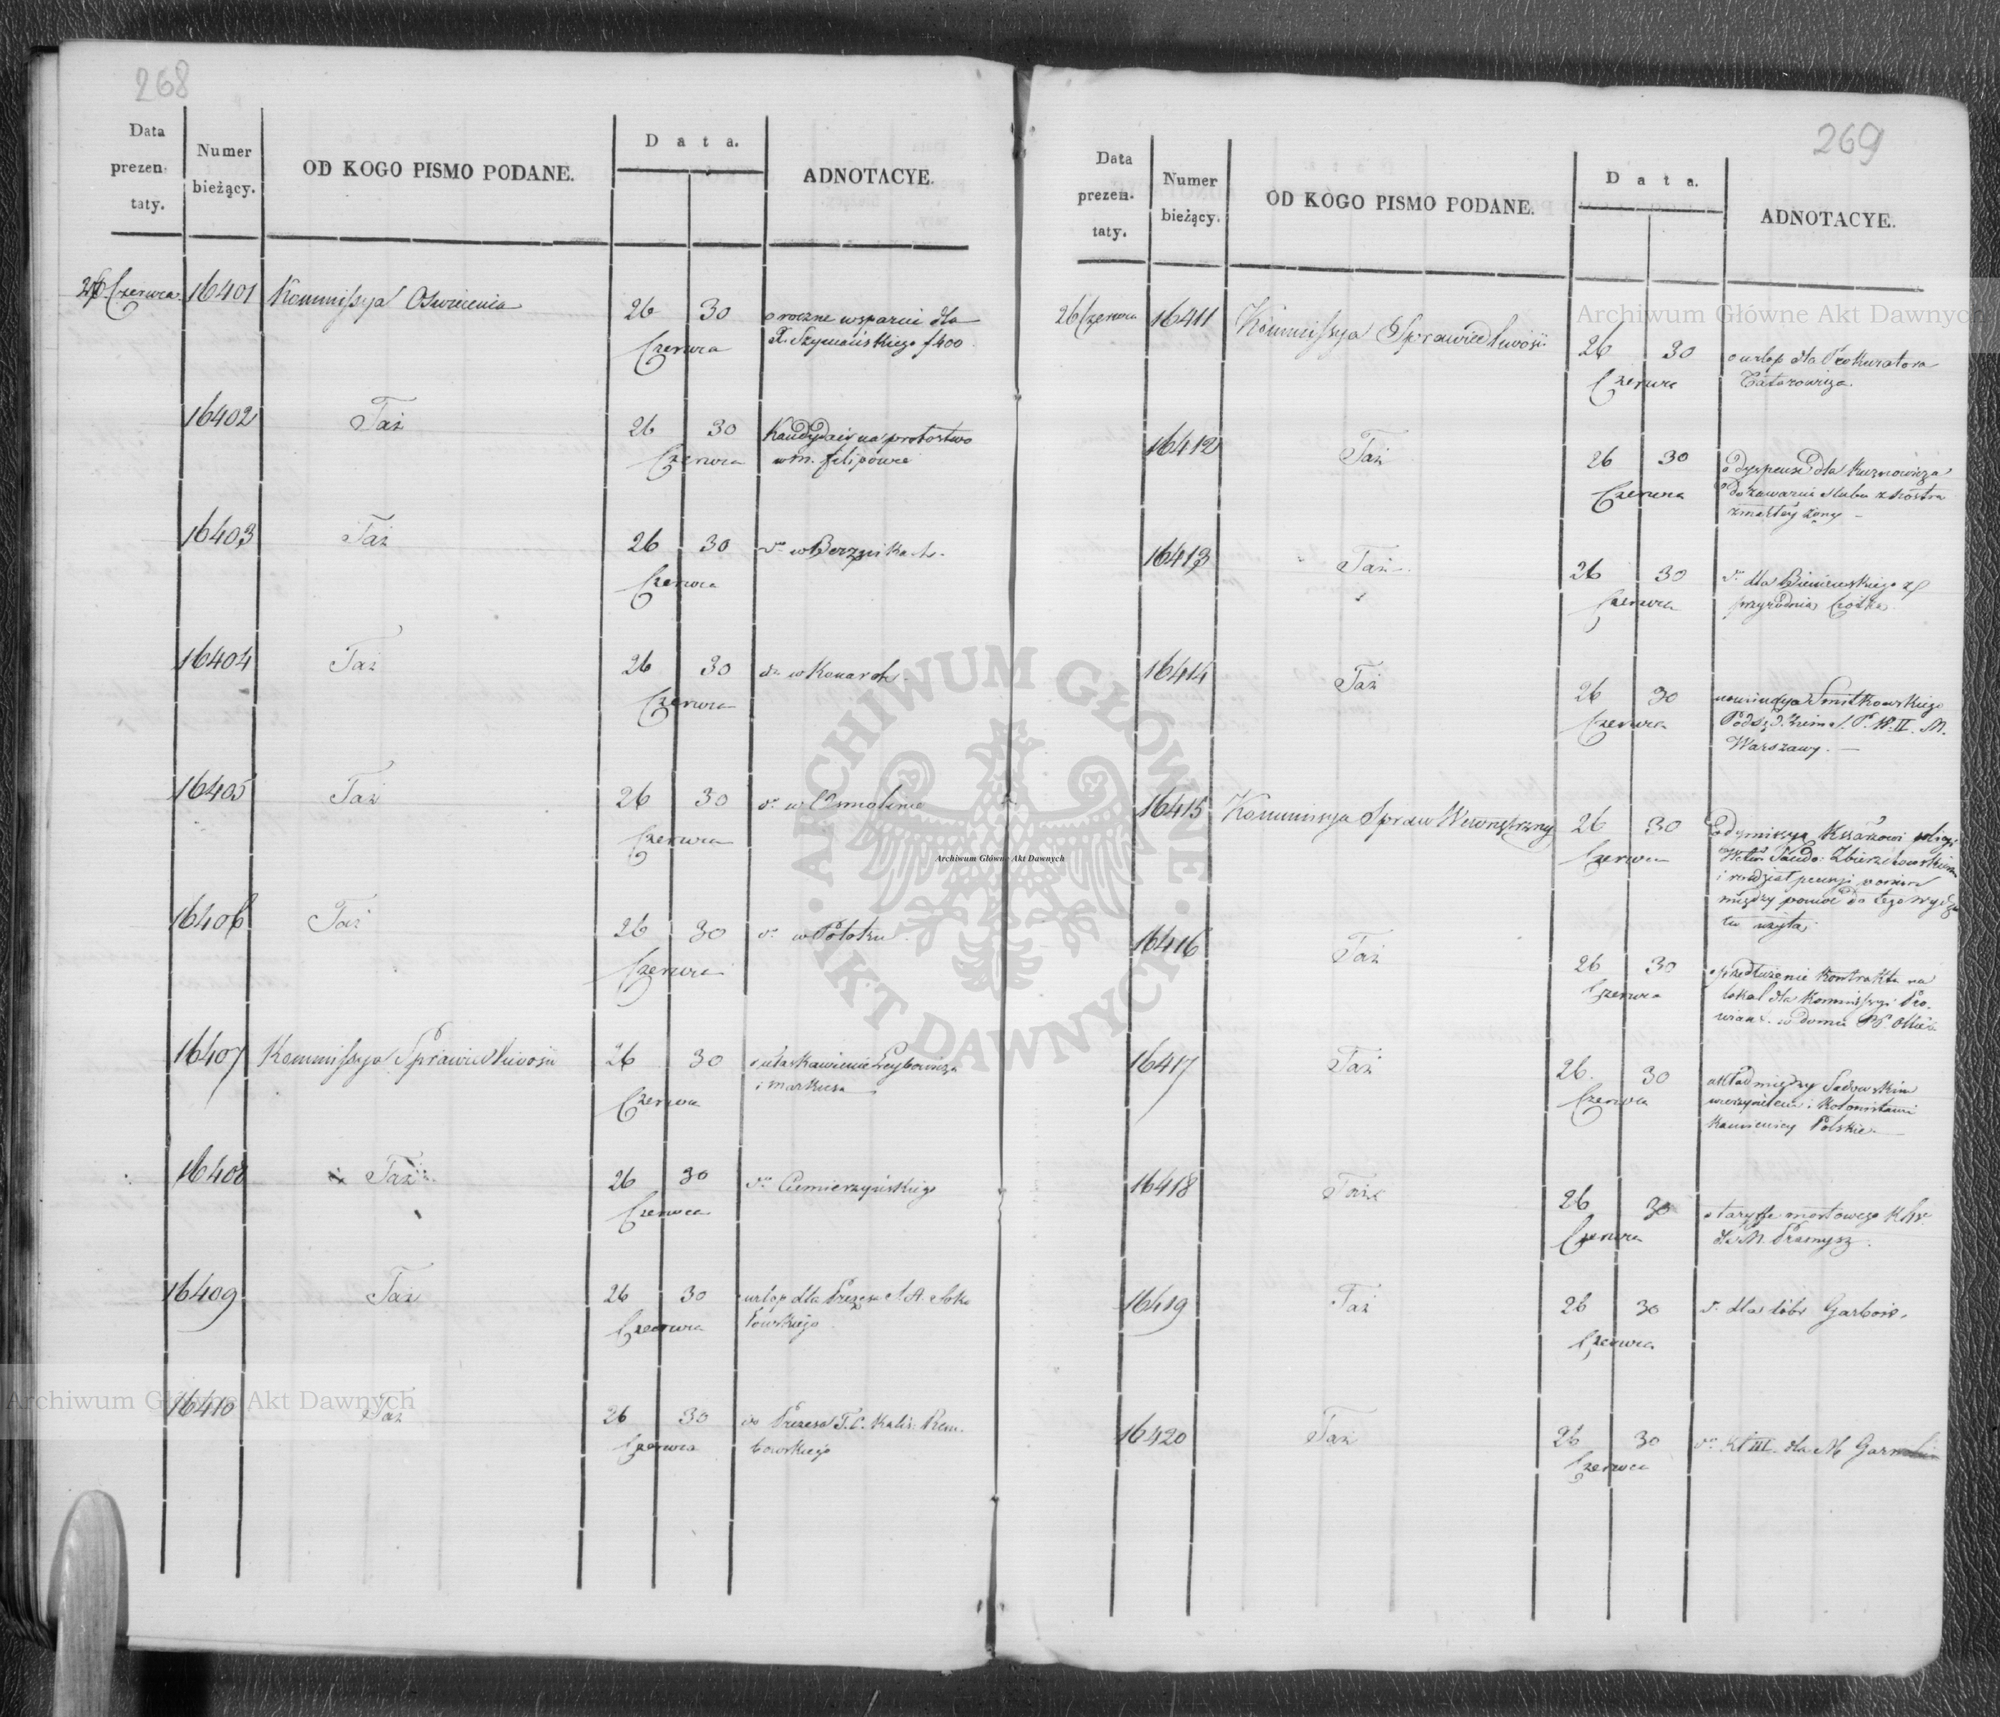 268
Data
prezen-
taty.
Numer
bieżący.
OD KOGO PISMO PODANE.
Data.
ADNOTACYE.
26 Czerwca 16401 Kommissya Oświecenia 26 30 o roczne wsparcie dla
Czerwca X. Szymańskiego f 400.
16402 Taż 26 30 Kandydaci na probostwo
Czerwca w m. Filipowie
16403 Taż 26 30 do w
Czerwca
16404 Taż 26 30 do w Konarach.
Czerwca
16405 Taż 26 30 do w Osmolinie
Czerwca
16406 Taż 26 30 do w Potoku.
Czerwca
16407 Kommissya Sprawiedliwości 26 30 o ułaskawienie Leybowicza
Czerwca i Markusa
16408 Taż 26 30 do Ciemierzyńskiego
Czerwca
16409 Taż 26 30 urlop dla Prezesa S. A. Soko
Czerwca łowskiego.
16410 Taż 26 30 do Prezesa T. C. Kalis. Rem-
Czerwca bowskiego
269
Data
prezen-
taty.
Numer
bieżący.
OD KOGO PISMO PODANE.
Data.
ADNOTACYE.
26 Czerwca 16411 Kommissya Sprawiedliwości 26 30 o urlop dla Prokuratora
Czerwca Tatarowicza
16412 Taż 26 30 o dyspensę dla
Czerwca do zawarcia ślubu z siostrą
zmarłey żony –
16413 Taż 26 30 do dla Bieniewskiego z
Czerwca przyrodnią Ciotką
16414 Taż 26 30 nominacya Smitkowskiego
Czerwca Pods. S. Krimi. P. W. II. M.
Warszawy. –
16415 Kommissya Spraw Wewnętrzny 26 30 o dymissyą
Czerwca
i rozdział pensyi
między pomoc do tego
tu użytą
16416 Taż 26 30 o przedłużenie kontraktu na
Czerwca lokal dla Kommissyi Pro-
wiant. w domu
16417 Taż 26. 30 układ między Sadowskim
Czerwca wierzycielem i Kolonistami
Kamienicy Polskie –
16418 Taż 26 30 o taryffę mostowego
Czerwca dla M. Prasnysz.
16419 Taż 26 30 do dla dóbr Garbów.
Czerwca
16420 Taż 26 30 do Kl III. dla M
Czerwca
ARCHIWUM GŁÓWNE
AKT DAWNYCH
Archiwum Główne Akt Dawnych
Archiwum Główne Akt Dawnych
Archiwum Główne Akt Dawnych